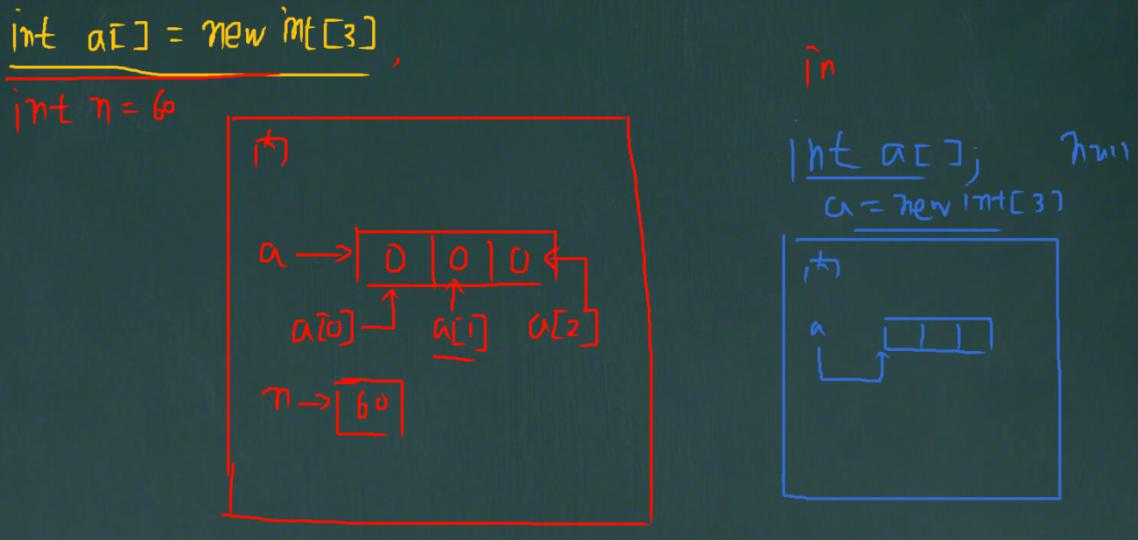 int a[] = new int[3]
int n = 60
内
a → 0 0 0
a[0] a[1] a[2]
n → 60
in
int a[];
a = new int[3]
内
a